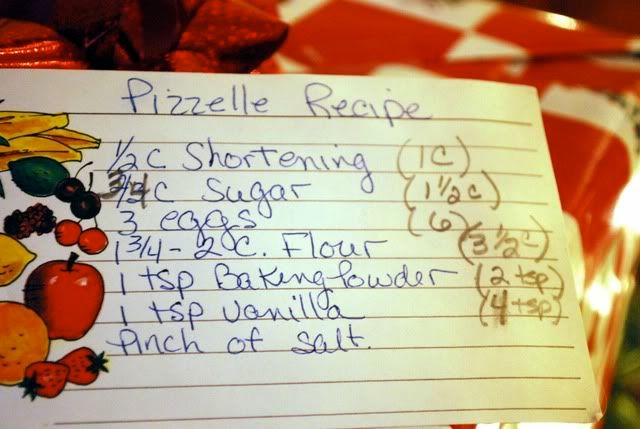 Pizzelle Recipe
1/2 C Shortening (1C)
3/4 C Sugar (1 1/2 C)
3 eggs (6)
1 3/4 - 2 C. Flour (3 1/2 C)
1 tsp Baking Powder (2 tsp)
1 tsp Vanilla (4 tsp)
Pinch of Salt.